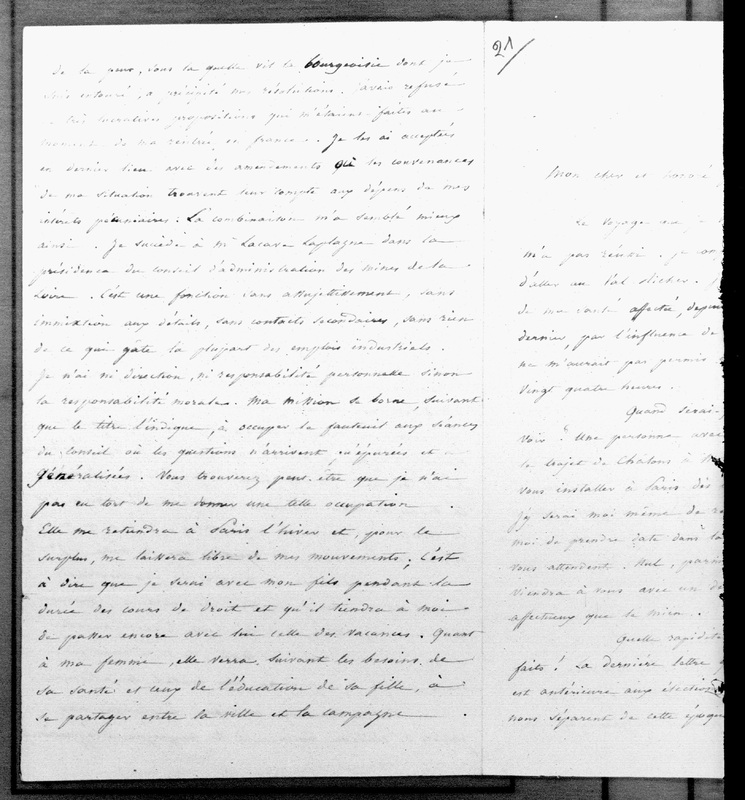 de la peur, sous la quelle vit la bourgeoisie dont je
suis entouré, a précipité mes résolutions. J'avais refusé
les lucratives propositions qui m'étaient faites au
moment de ma rentrée en france. Je les ai acceptées
en dernier lieu avec des amendements où les convenances
de ma situation trouvent leur compte aux dépens de mes
intérêts pécuniaires. La combinaison m'a semblé mieux
ainsi. Je succède à Mr Lacave Laplagne dans la
présidence du conseil d'administration des mines de la
Loire. C'est une fonction sans assujettissement, sans
immixtion aux détails, sans contacts secondaires, sans rien
de ce qui gâte la plupart des emplois industriels.
Je n'ai ni direction, ni responsabilité personnelle sinon
la responsabilité morale. Ma mission se borne, suivant
que le titre l'indique, à occuper le fauteuil aux séances
du conseil où les questions n'arrivent qu'épurées et
généralisées. Vous trouverez peut-être que je n'ai
pas eu tort de me donner une telle occupation.
Elle me retiendra à Paris l'hiver et, pour le
surplus, me laissera libre de mes mouvements, c'est
à dire que je serai avec mon fils pendant la
durée des cours de droit et qu'il tiendra à moi
de passer encore avec lui celle des vacances. Quant
à ma femme, elle verra suivant les besoins de
sa santé et ceux de l'éducation de sa fille, à
se partager entre la ville et la campagne.
21
Mon cher et honoré
Le voyage que je
m'a pas réussi. Je
d'aller au Val Richer.
de ma santé affectée, depuis
dernier, par l'influence de
ne m'aurait pas permis
vingt quatre heures.
Quand serai-
voir? Une personne avec
le trajet de Châlons à
vous installer à Paris dès
J'y serai moi même de
moi de prendre date dans la
vous attendent. Nul, parmi
viendra à vous avec un
affectueux que le mien.
Quelle rapidité
faits! La dernière lettre
est antérieure aux élections
nous séparent de cette époque